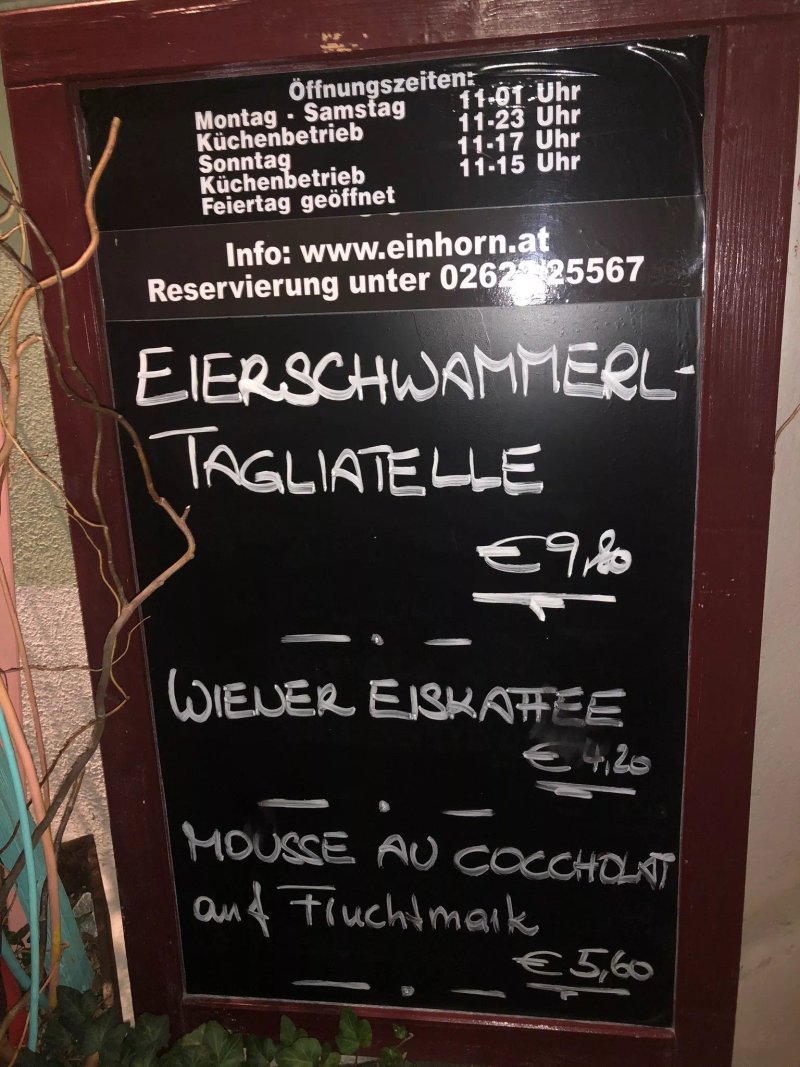 Öffnungszeiten:
Montag - Samstag 11-01 Uhr
Küchenbetrieb 11-23 Uhr
Sonntag 11-17 Uhr
Küchenbetrieb 11-15 Uhr
Feiertag geöffnet
Info: www.einhorn.at
Reservierung unter 25567
EIERSCHWAMMERL-
TAGLIATELLE
€ 9,80
WIENER EISKAFFEE
€ 4,20
MOUSSE AU COCCHOLAT
auf Fruchtmark
€ 5,60